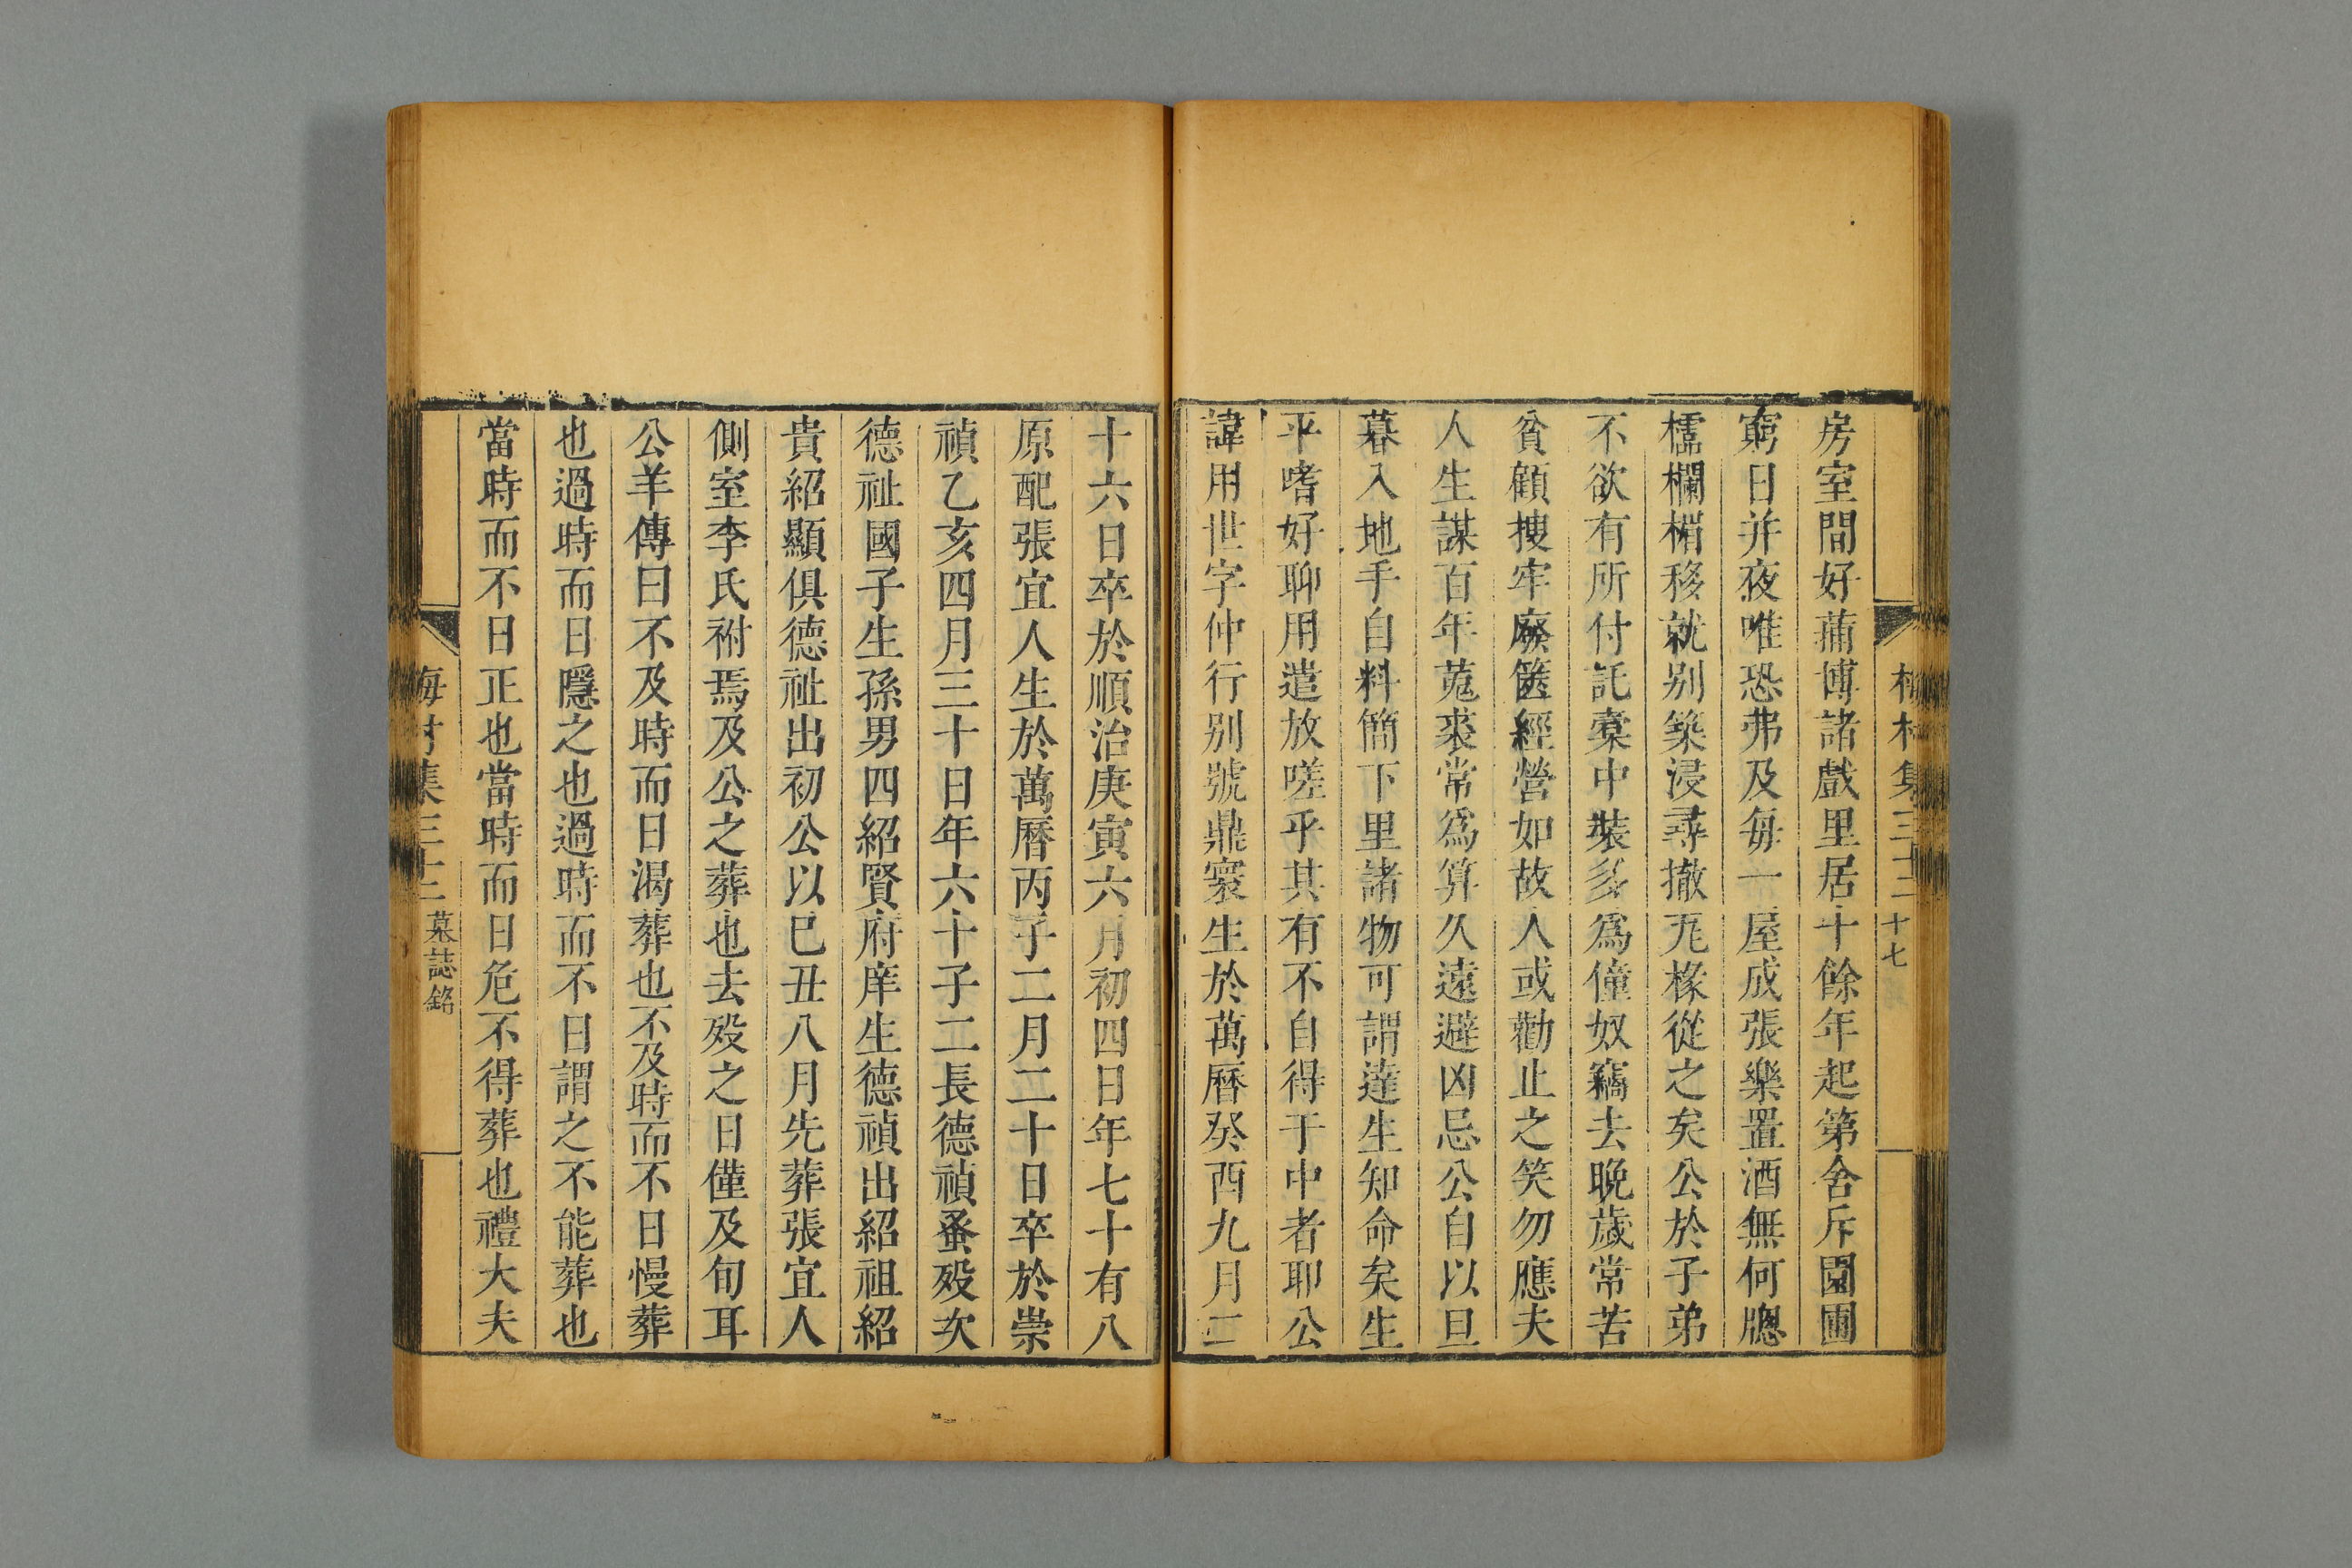 房室間好蒱博諸戲里居十餘年起第舍斥園圃
窮日并夜唯恐弗及每一屋成張樂置酒無何牕
檽欄楣移就别築浸尋撤瓦椽從之矣公於子弟
不欲有所付託槖中裝多為僮奴竊去晚歲常苦
貧顧捜牢廢篋經營如故人或勸止之笑勿應夫
人生謀百年菟裘常為算久遠避凶忌公自以旦
暮入地手自料簡下里諸物可謂達生知命矣生
平嗜好聊用遣放嗟乎其有不自得于中者耶公
諱用世字仲行别號鼎寰生於萬曆癸酉九月二
十六日卒於順治庚寅六月初四日年七十有八
原配張宜人生於萬曆丙子二月二十日卒於崇
禎乙亥四月三十日年六十子二長德禎蚤歿次
德祉國子生孫男四紹賢府庠生德禎出紹祖紹
貴紹顯俱德祉出初公以已丑八月先葬張宜人
側室李氏祔焉及公之葬也去歿之日僅及旬耳
公羊傳曰不及時而日渴葬也不及時而不日慢葬
也過時而日隱之也過時而不日謂之不能葬也
當時而不日正也當時而日危不得葬也禮大夫
梅村集三十二 墓誌銘